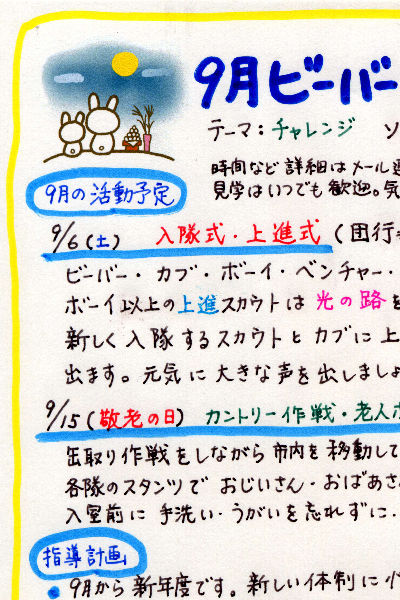 9月ビーバー
テーマ：チャレンジ ソ
時間など詳細はメール
見学はいつでも歓迎。気
9月の活動予定
9/6(土) 入隊式・上進式(団行
ビーバー・カブ・ボーイ・ベンチャー・
ボーイ以上の上進スカウトは光の路を
新しく入隊するスカウトとカブに上
出ます。元気に大きな声を出しましょ
9/15(敬老の日) カントリー作戦・老人ホ
缶取り作戦をしながら市内を移動して
各隊のスタンツでおじいさん・おばあさ
入室前に手洗い・うがいを忘れずに・
指導計画
・9月から新年度です。新しい体制に